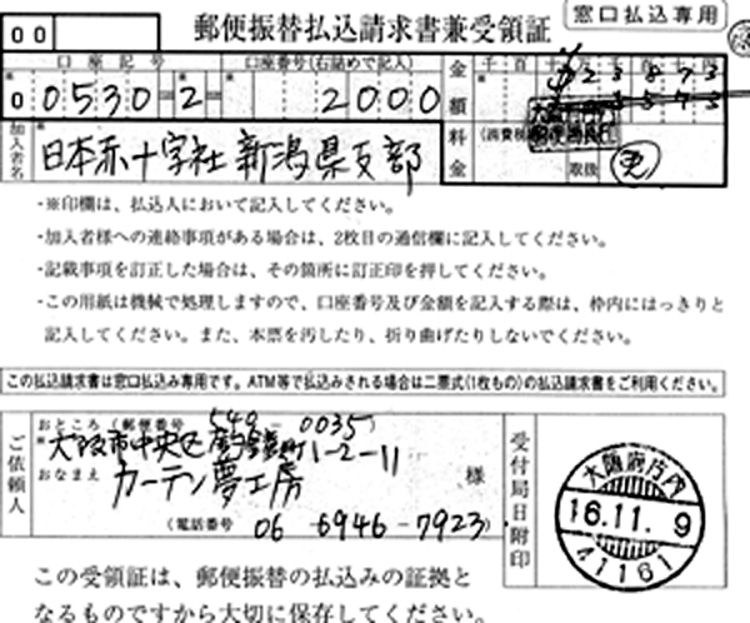 窓口払込専用
00
郵便振替払込請求書兼受領証
口座記号
口座番号(右詰めで記入)
金額
千百十万千百十円
※
00530=2=
※
2000
※
23873
加入者名
※
日本赤十字社 新潟県支部
料金
(消費税
取扱
免
・※印欄は、払込人において記入してください。
・加入者様への連絡事項がある場合は、2枚目の通信欄に記入してください。
・記載事項を訂正した場合は、その箇所に訂正印を押してください。
・この用紙は機械で処理しますので、口座番号及び金額を記入する際は、枠内にはっきりと
記入してください。また、本票を汚したり、折り曲げたりしないでください。
この払込請求書は窓口払込み専用です。ATM等で払込みされる場合は二票式(1枚もの)の払込請求書をご利用ください。
ご依頼人
おところ(郵便番号 540-0035)
※大阪市中央区釣鐘町1-2-11
おなまえ カーテン夢工房 様
(電話番号 06 6946-7923)
受付局日附印
大阪府庁内
16.11.9
41161
この受領証は、郵便振替の払込みの証拠と
なるものですから大切に保存してください。